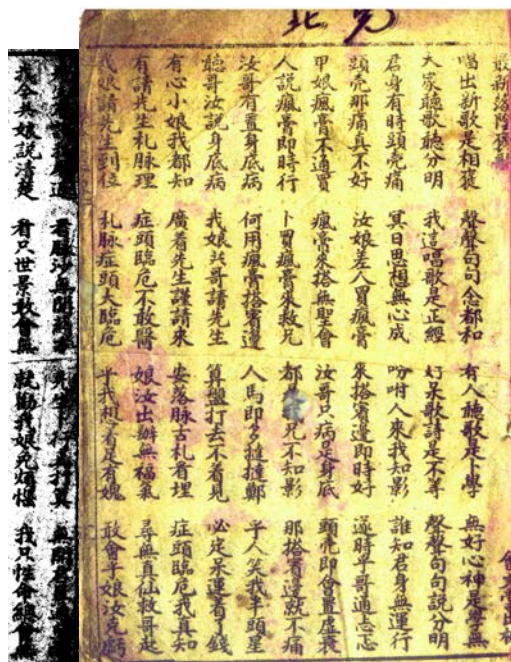 最新落陰褒歌
唱出新歌是相褒 聲聲句句念都和 有人聽歌是卜學 無好心神是學無
大家聽歌聽分明 我這唱歌是正經 好呆歌請是不等 聲聲句句說分明
君身有時頭壳痛 冥日思想無心成 吩咐人來我知影 誰知君身無運行
頭壳那痛真不好 汝娘差人買瘋膏 來搭賓邊即時好 遂時平哥通忐忑
甲娘瘋膏不通買 瘋膏來搭無聖會 汝哥只病是身底 頭壳即會置虛衰
人說瘋膏即時行 卜買瘋膏來救兄 都 兄不知影 那搭賓邊就不痛
汝哥有置身底病 何用瘋膏搭賓邊 人馬即多撻撻鄭 乎人笑我半頭星
聽哥汝說身底病 我娘共哥請先生 算盤打去不着見 必定呆運着了錢
有心小娘我都知 廣看先生謹請來 安落脉古札看埋 症頭臨危我真知
有請先生札脉理 症頭臨危不敢醫 娘汝出辦無福氣 尋無真仙救哥起
我娘請先生到位 札脉症頭太臨危 乎我想看足有媿 敢會乎娘汝克虧
我今共娘說清楚 看只世景敢會無 就勸我娘免煩惱 我只性命總